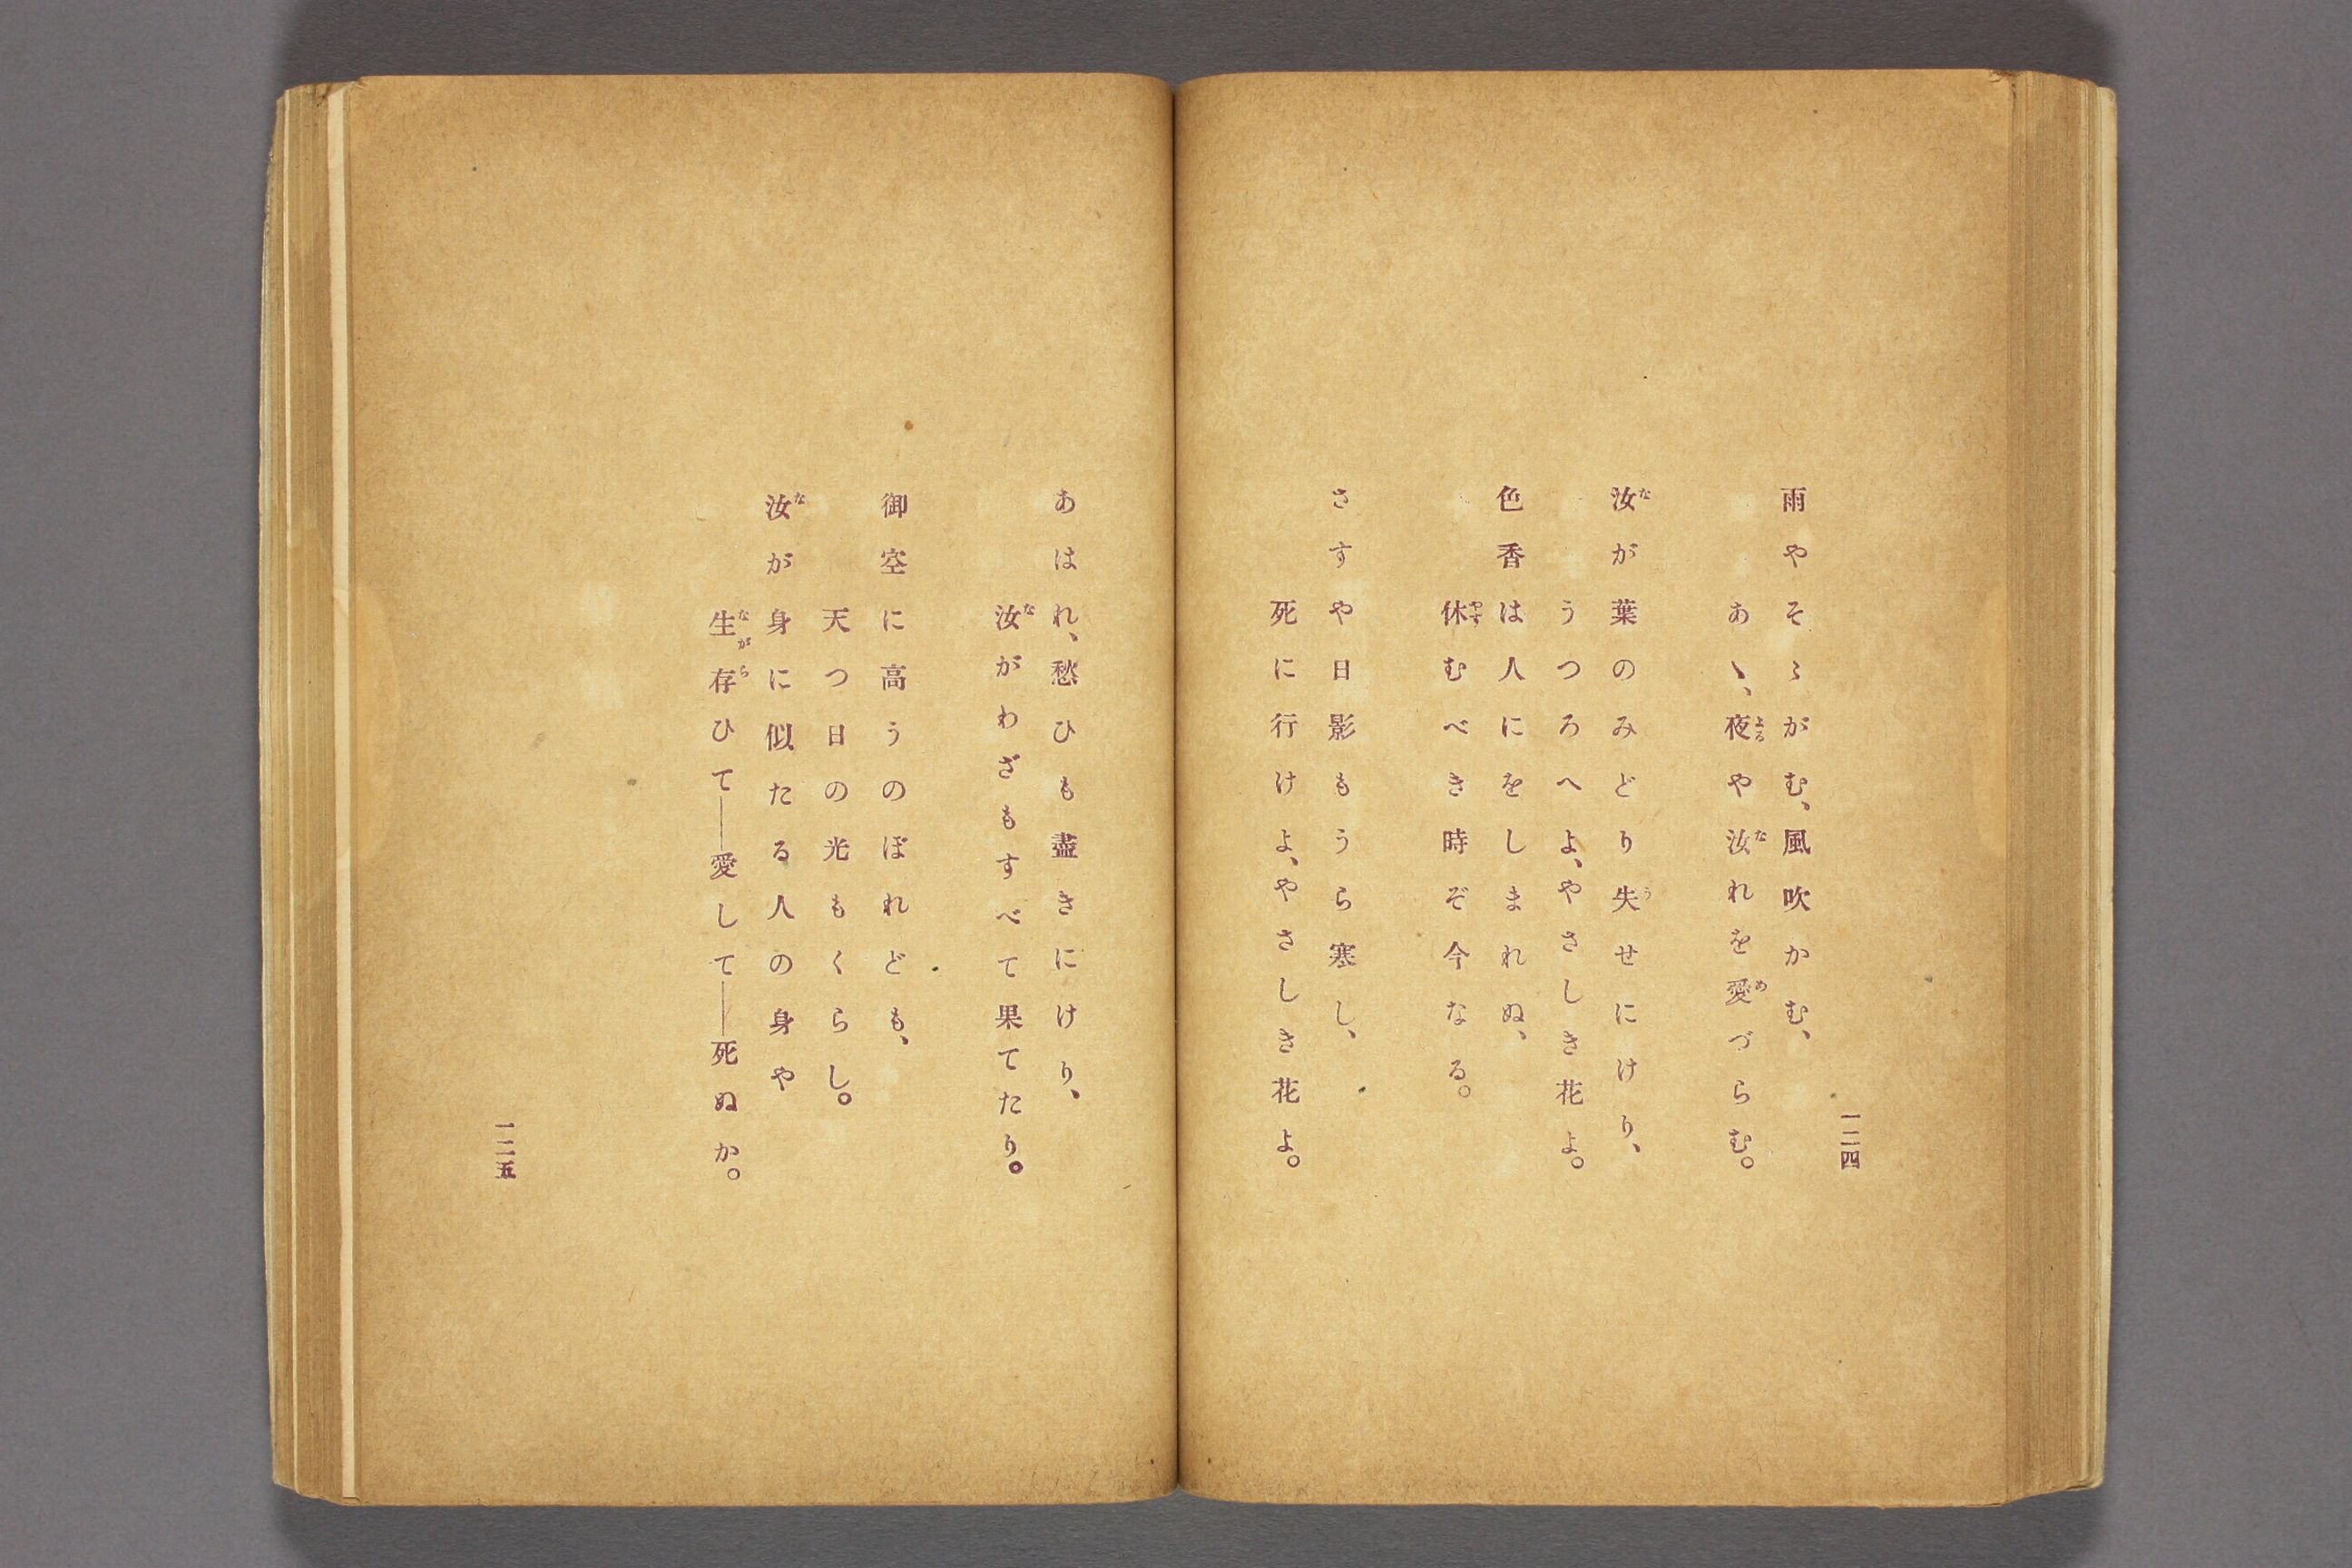 一二四
雨やそゝがむ、風吹かむ、
あゝ、夜や汝れを愛づらむ。
汝が葉のみどり失せにけり、
うつろへよ、やさしき花よ。
色香は人にをしまれぬ、
休むべき時ぞ今なる。
さすや日影もうら寒し、
死に行けよ、やさしき花よ。
あはれ、愁ひも盡きにけり、
汝がわざもすべて果てたり。
御空に高うのぼれども、
天つ日の光もくらし。
汝が身に似たる人の身や
生存ひて──愛して──死ぬか。
一二五